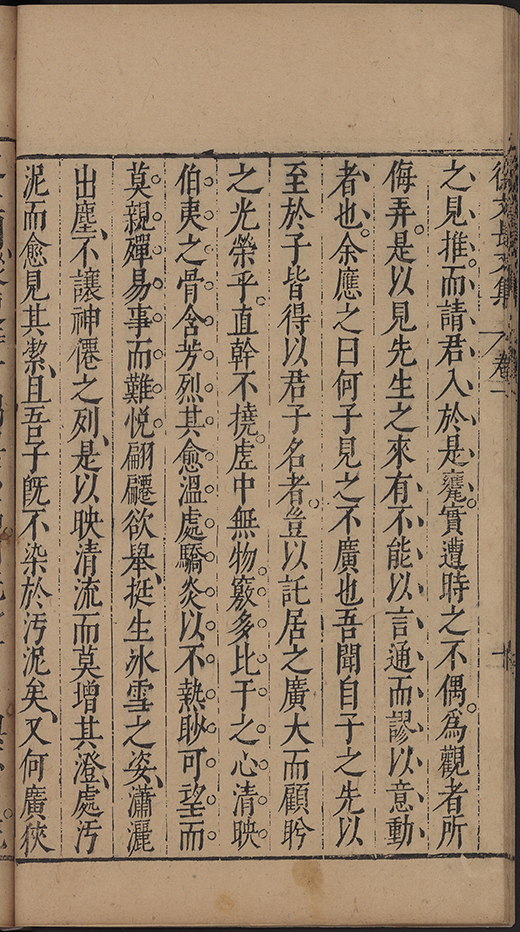 徐文長文集 卷一 十
之見推而請君入於是甕實遭時之不偶爲觀者所
侮弄是以見先生之來有不能以言通而謬以意動
者也余應之曰何子見之不廣也吾聞自子之先以
至於子皆得以君子名者豈以託居之廣大而顧盻
之光榮乎直幹不撓虛中無物竅多比干之心清映
伯夷之骨含芳烈其愈溫處驕炎以不熱眇可望而
莫親殫易事而難悅翩躚欲舉挺生冰雪之姿瀟灑
出塵不讓神僊之列是以映清流而莫增其澄處汚
泥而愈見其潔且吾子旣不染於汚泥矣又何廣狹